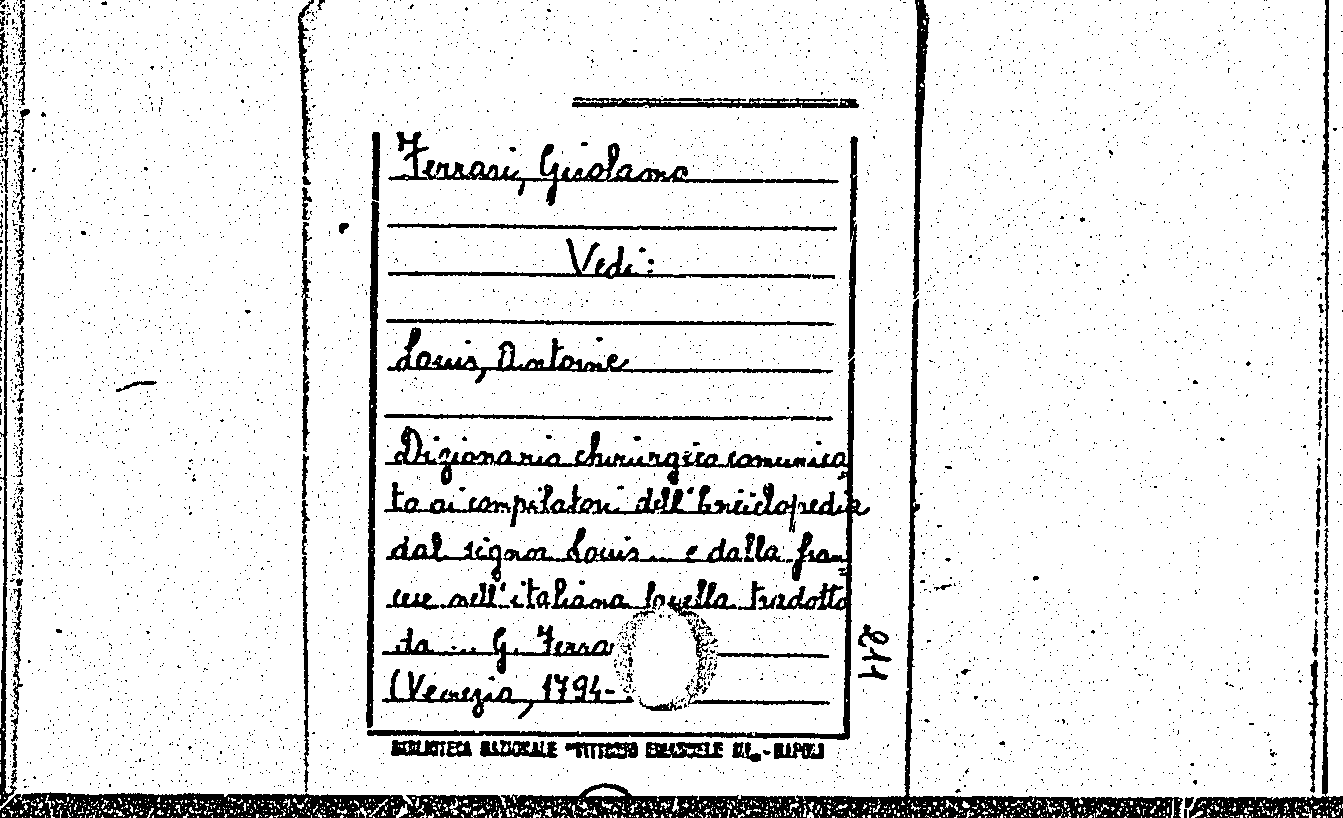 Ferrari, Girolamo
Vedi:
Louis, Antoine
Dizionario chirurgico comunica
to ai compilatori dell'Enciclopedia
dal signor Louis... e dalla fran=
cese nell'italiana favella tradotto
da ... G. Ferra
(Venezia, 1794-
211
BIBLIOTECA NAZIONALE "VITTORIO EMANUELE III" - NAPOLI